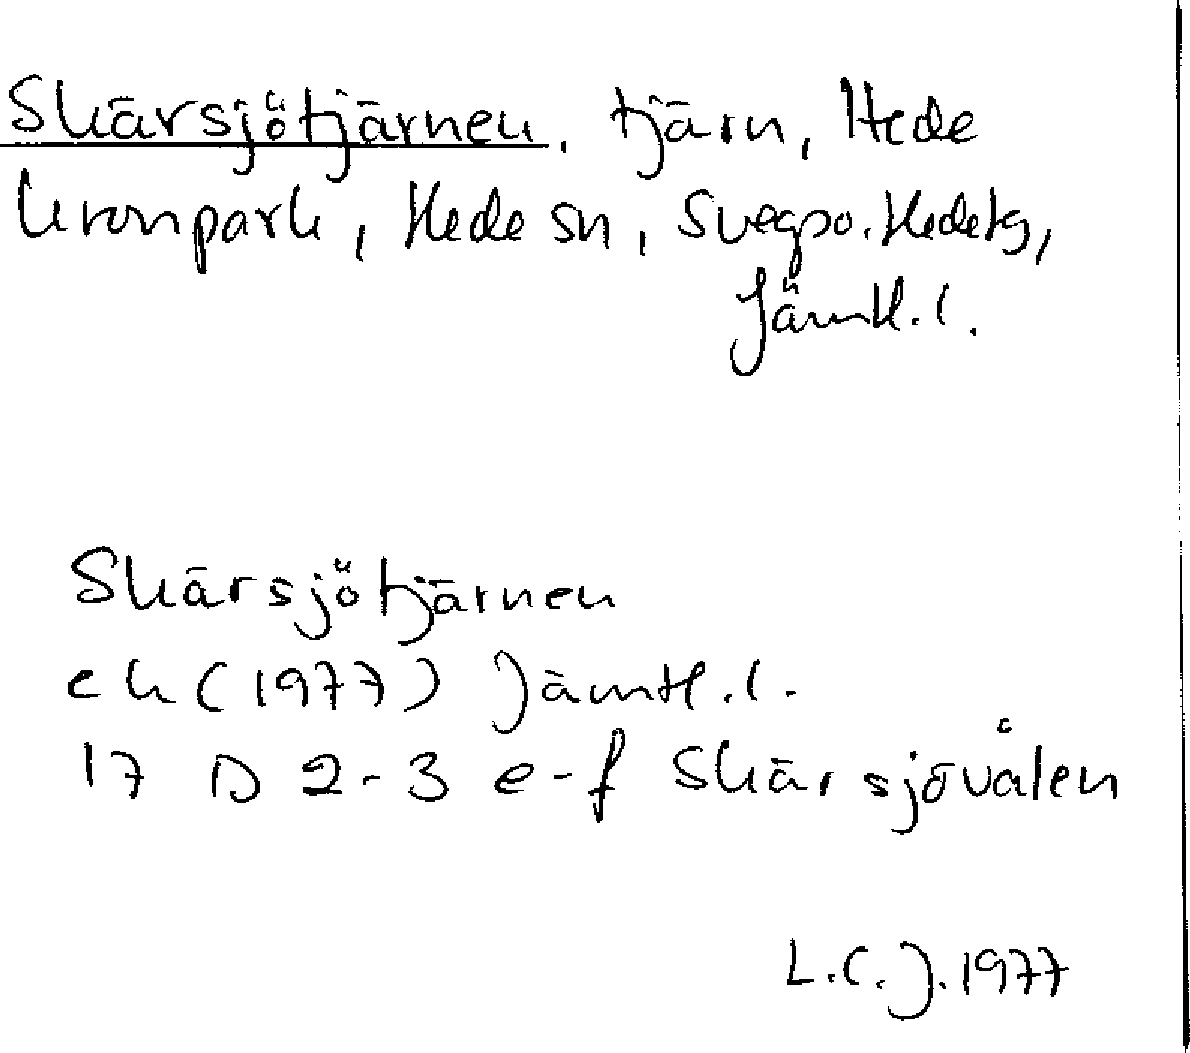 Skärsjötjärnen. tjärn, Hede
kronpark, Hede sn, Svegpo. Hedetg,
Jämtl. l.
Skärsjötjärnen
ek (1977) Jämtl. l.
17 D 2-3 e-f Skärsjövålen
L.C.J. 1977